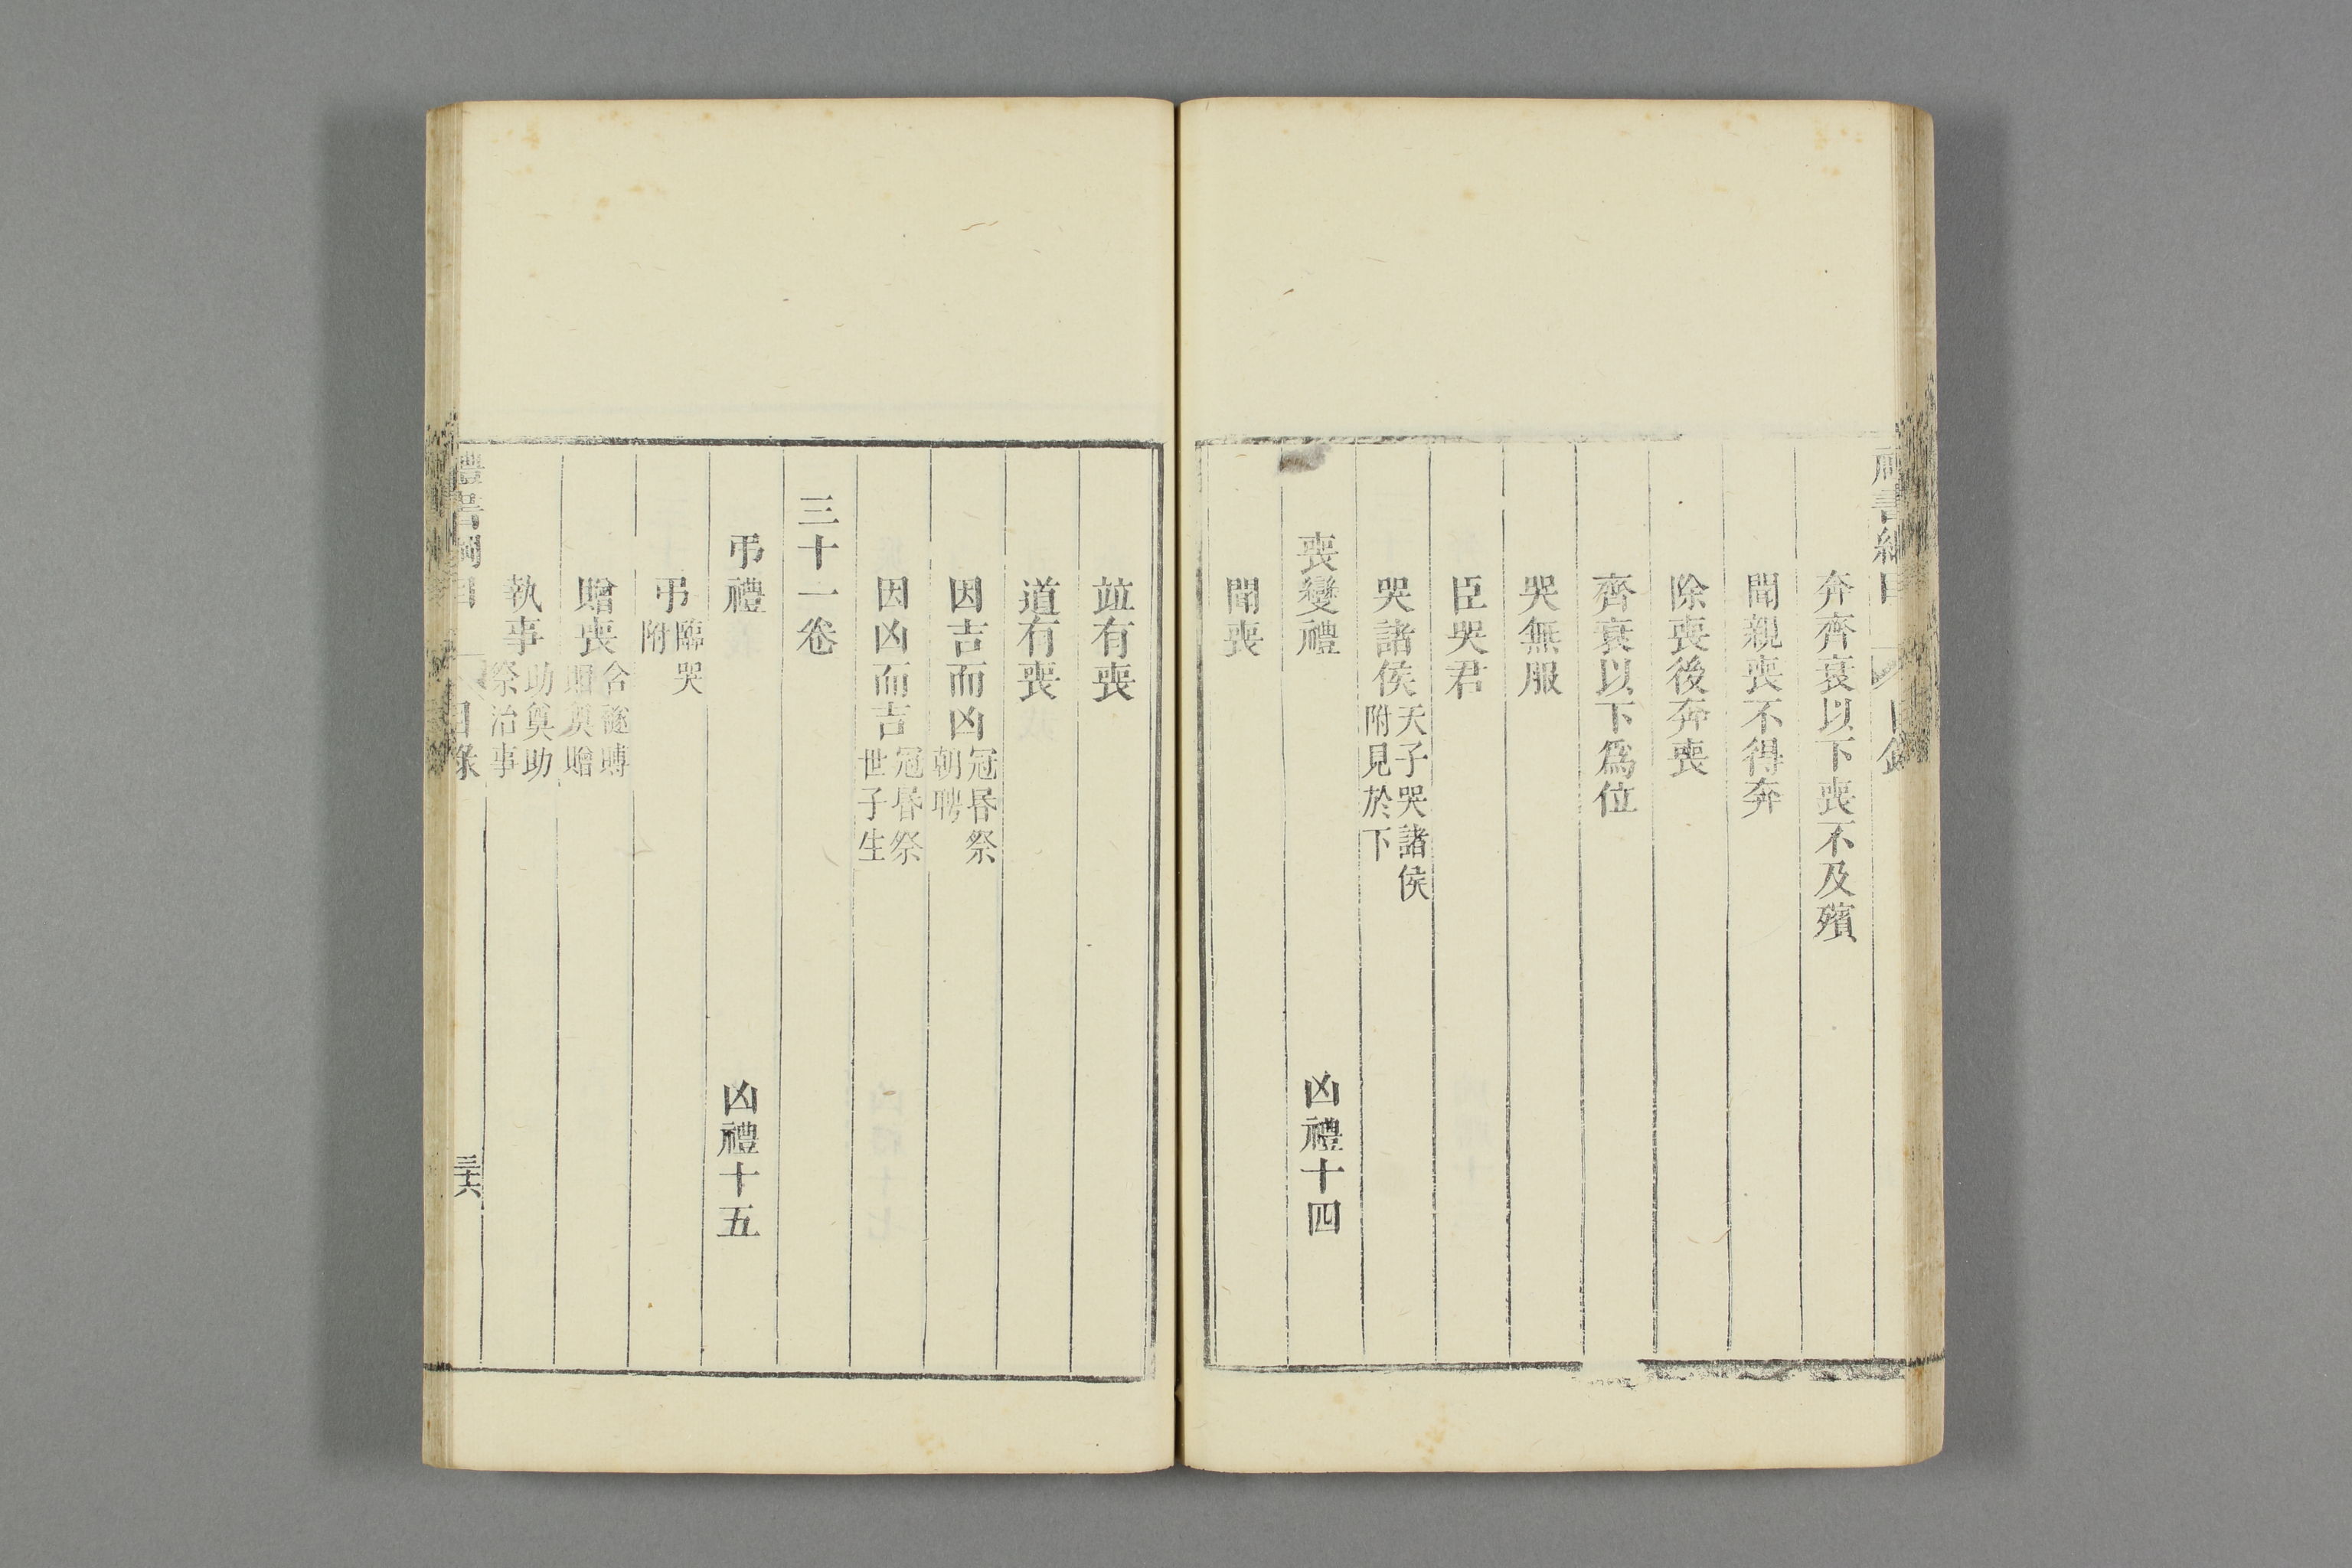 奔齊衰以下喪不及殯
聞親喪不得奔
除喪後奔喪
齊衰以下爲位
哭無服
臣哭君
哭諸侯天子哭諸侯附見於下
喪變禮 凶禮十四
聞喪
竝有喪
道有喪
因吉而凶冠昏祭朝聘
因凶而吉冠昏祭世子生
三十一卷
弔禮 凶禮十五
弔臨哭附
贈喪含襚賻賵奠贈
執事助奠助祭治事
禮書綱目 目錄 三十六